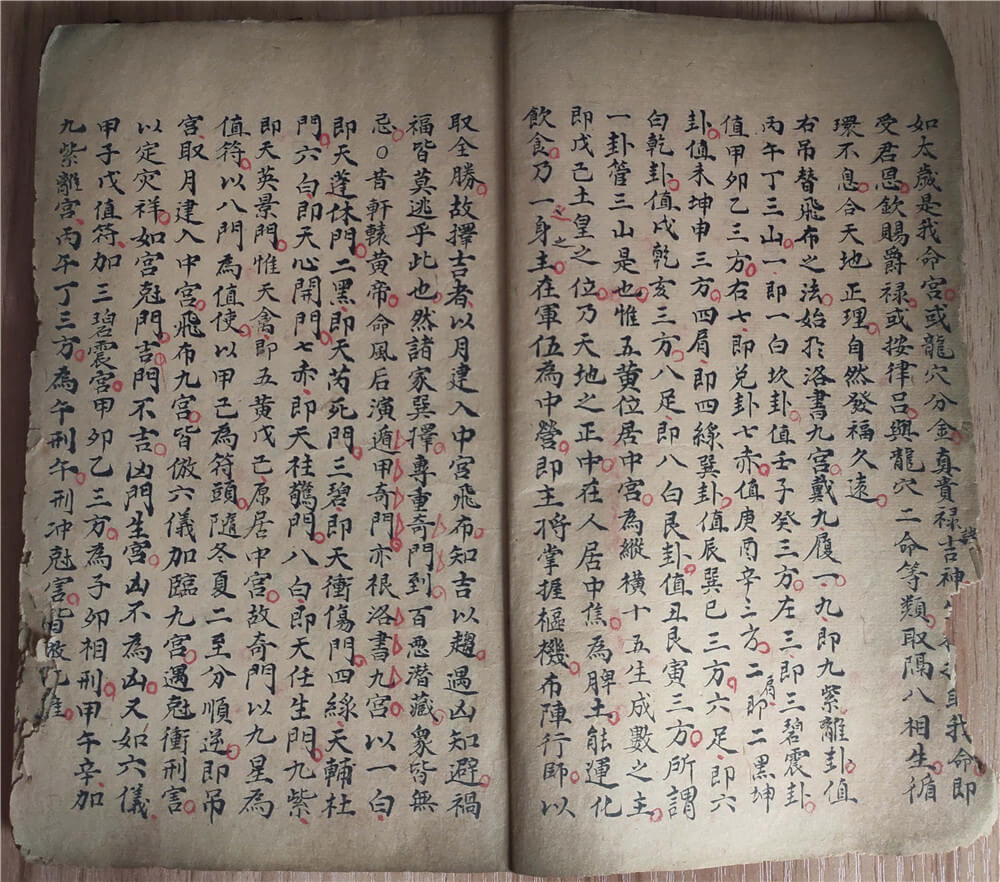 如太歲是我命宮或龍穴分金真貴祿吉神 我命即
受君恩欽賜爵祿或按律呂與龍穴二命等類取隔八相生循
環不息合天地正理自然發福久遠
右吊替飛布之法始於洛書九宮戴九履一九即九紫離卦值
丙午丁三山一即一白坎卦值壬子癸三方左三即三碧震卦
值甲卯乙三方右七即兌卦七赤值庚酉辛三方二肩即二黑坤
卦值未坤申三方四肩即四綠巽卦值辰巽巳三方六足即六
白乾卦值戌乾亥三方八足即八白艮卦值丑艮寅三方所謂
一卦管三山是也惟五黃位居中宮為縱橫十五生成數之主
即戊己土皇之位乃天地之正中在人居中焦為脾土能運化
飲食乃一身之主在軍伍為中營即主將掌握樞機布陣行師以
取全勝故擇吉者以月建入中宮飛布知吉以趨遇凶知避禍
福皆莫逃乎此也然諸家巽擇專重奇門到百惡潛藏眾皆無
忌○昔軒轅黃帝命風后演遁甲奇門亦根洛書九宮以一白
即天蓬休門二黑即天芮死門三碧即天衝傷門四綠天輔杜
門六白即天心開門七赤即天柱驚門八白即天任生門九紫
即天英景門惟天禽即五黃戊己原居中宮故奇門以九星為
值符以八門為值使以甲己為符頭隨冬夏二至分順逆即吊
宮取月建入中宮飛布九宮皆倣六儀加臨九宮遇尅衝刑害
以定灾祥如宮尅門吉門不吉凶門生宮凶不為凶又如六儀
甲子戊值符加三碧震宮甲卯乙三方為子卯相刑甲午辛加
九紫離宮丙午丁三方為午刑午刑冲尅害皆倣